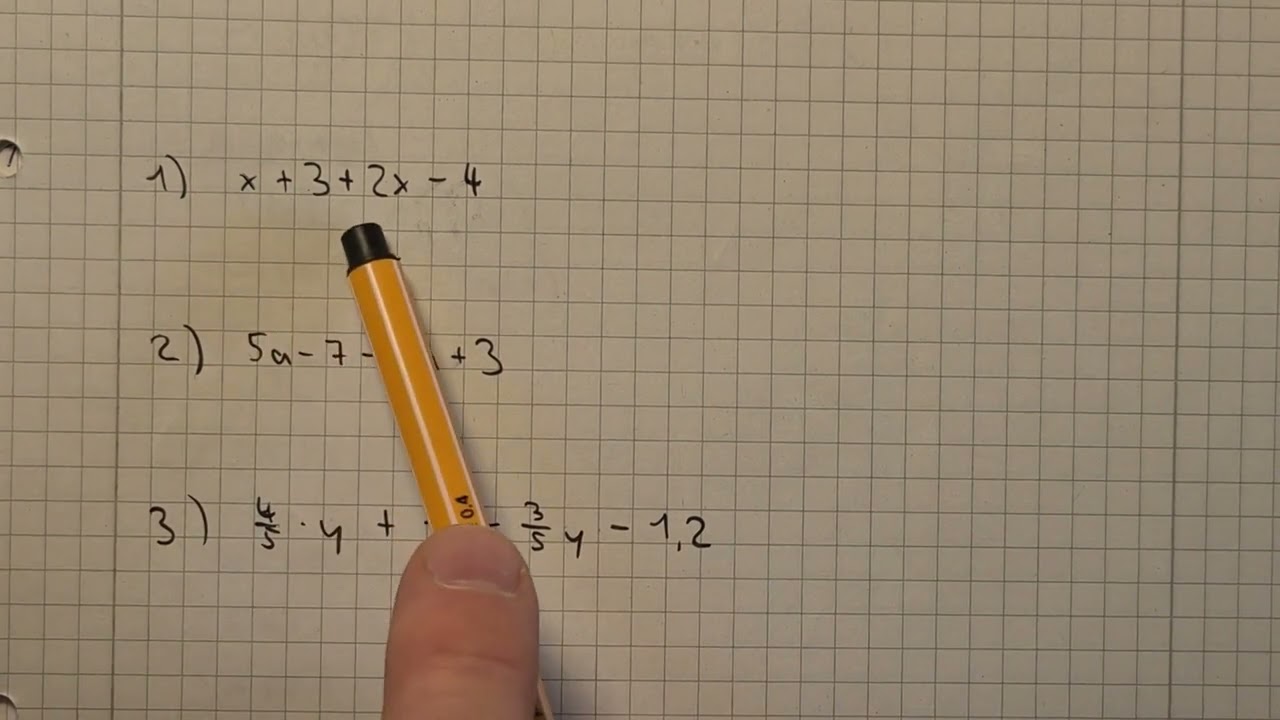 1) x + 3 + 2x - 4
2) 5a - 7 - + 3
3) 4/5 · y + - 3/5 y - 1,2
0.4